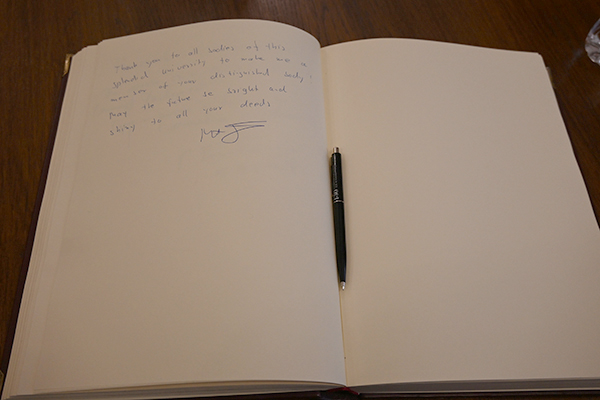 Thank you to all bodies of this
splendid University to make me a
member of your distinguished body,
may the future be bright and
shiny to all your deeds